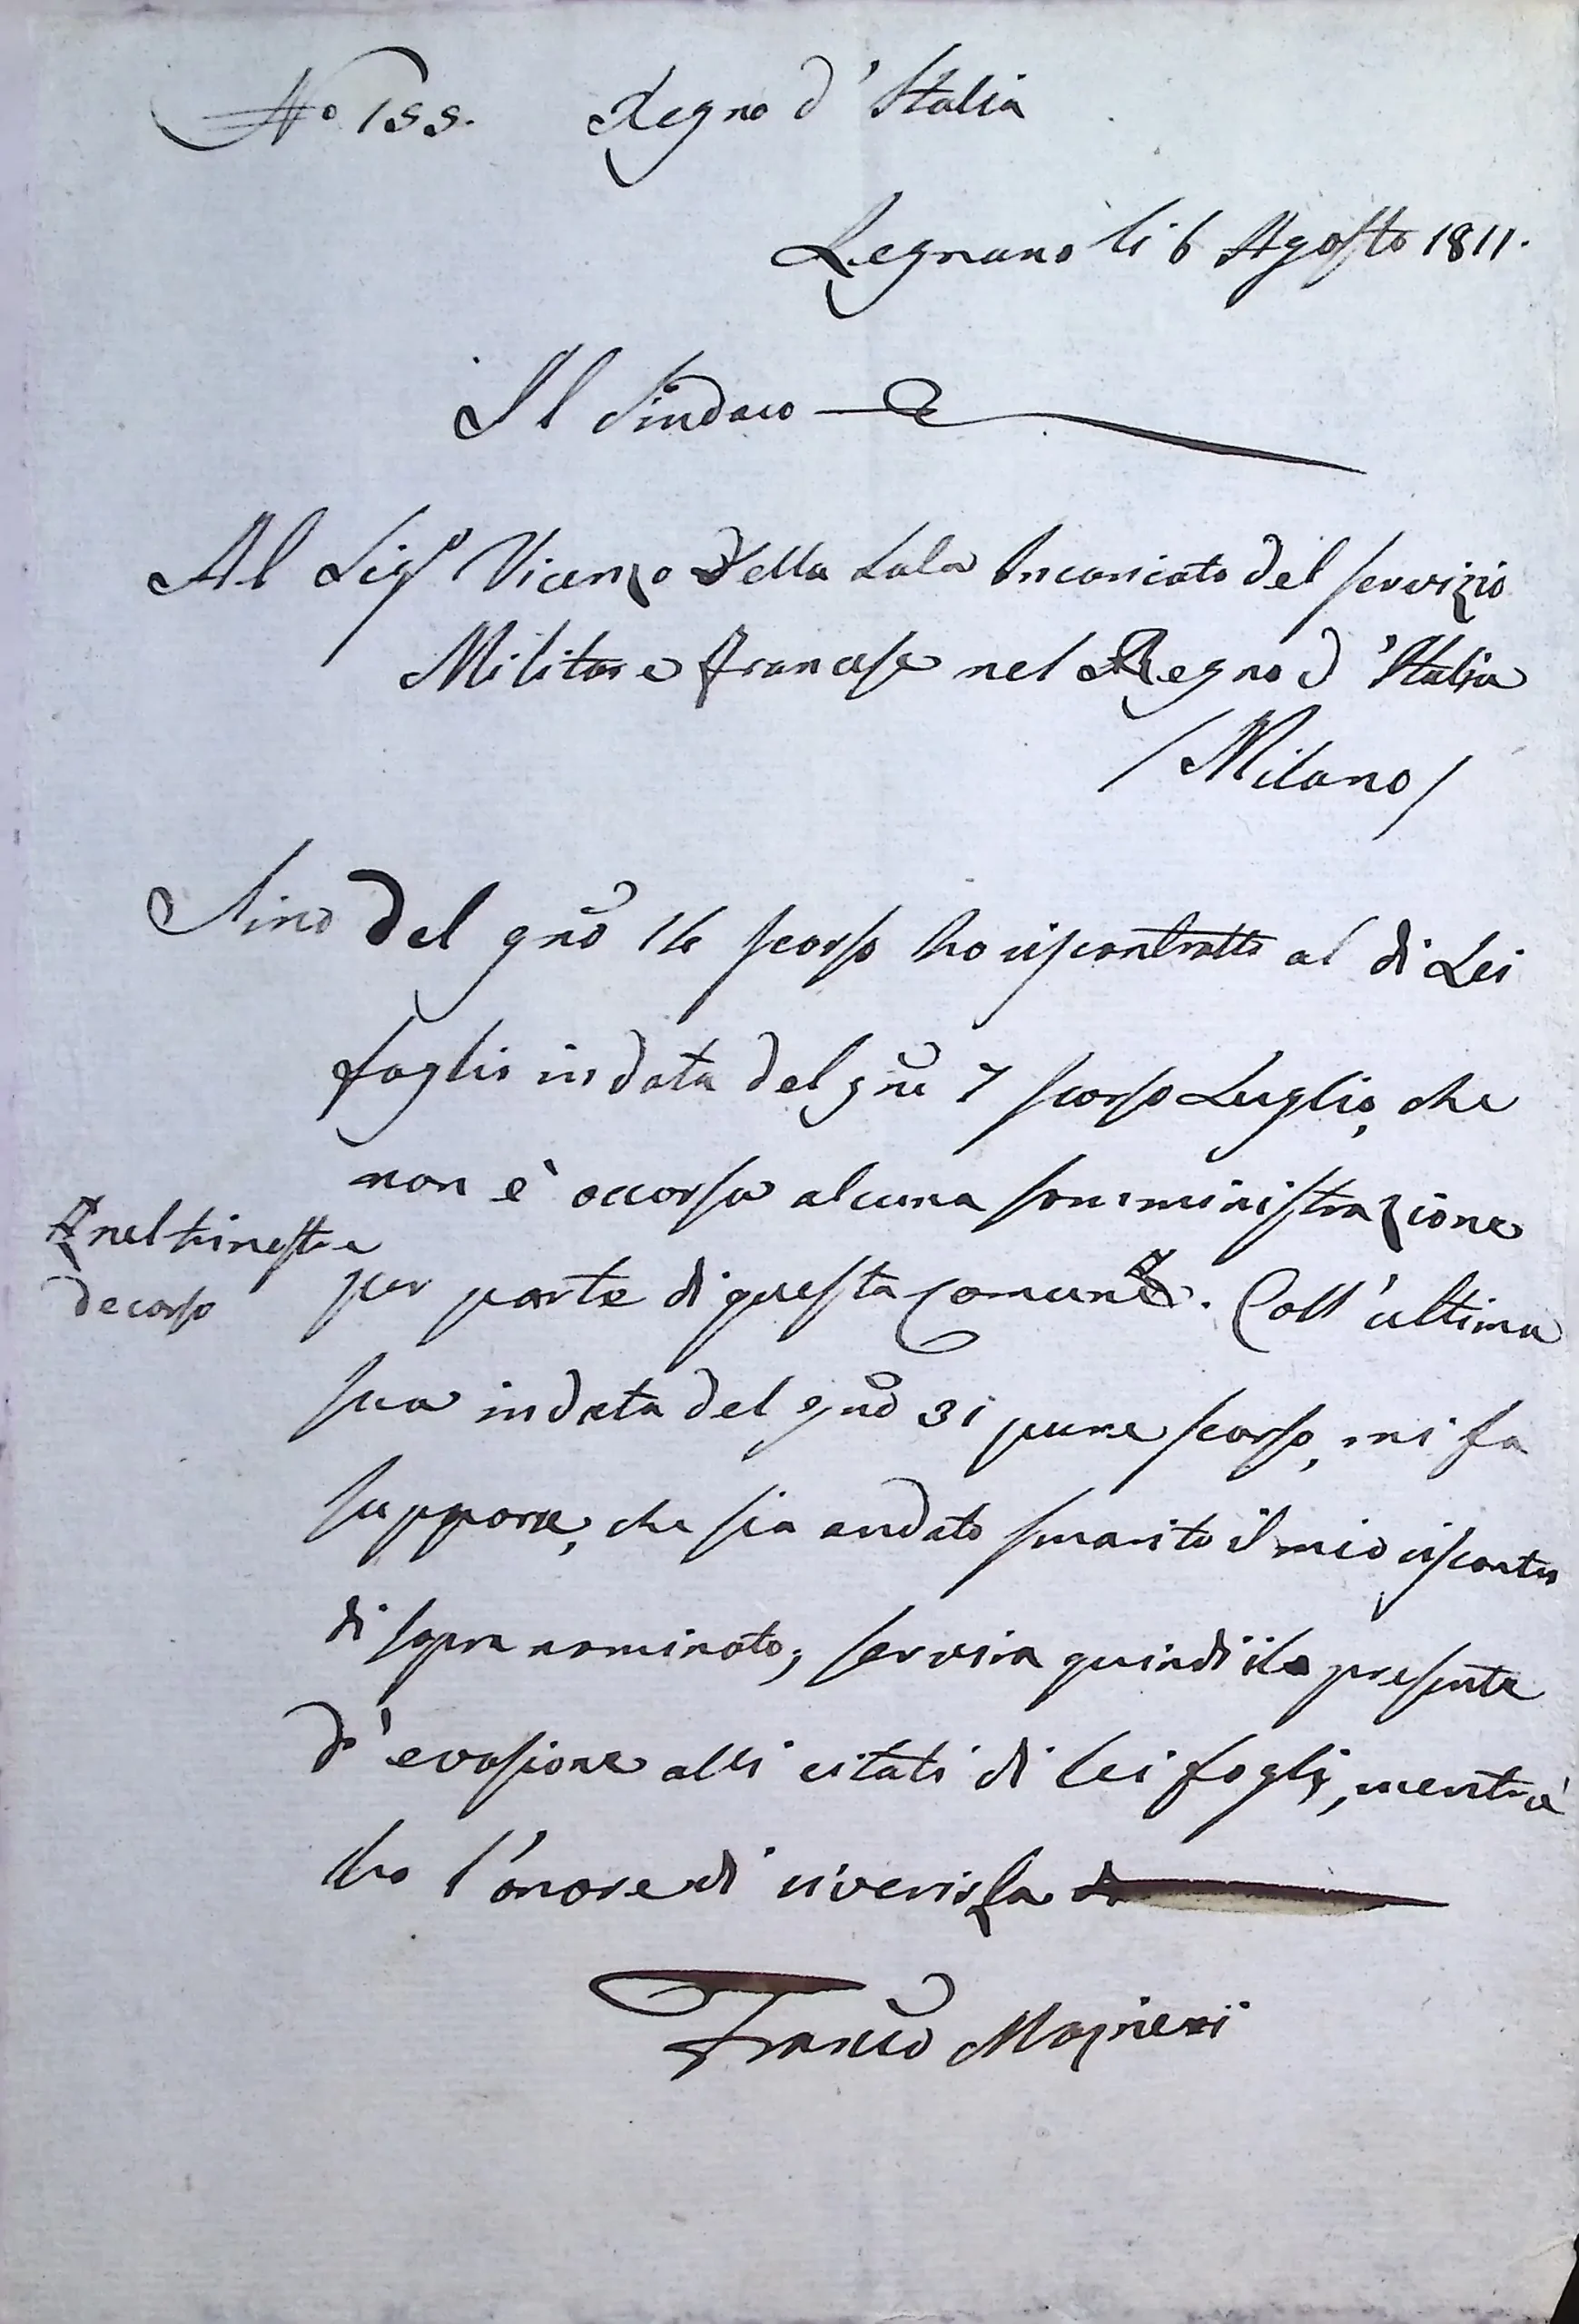 No 155. Regno d'Italia
Legnano li 6 Agosto 1811.
Il Sindaco
Al Sigr Vicenzo Della Sala Incaricato del servizio
Militare francese nel Regno d'Italia
/ Milano /
Sino del gno 16 scorso ho riscontratto al di Lei
foglio in data del gno 7 scorso Luglio, che
non è occorsa alcuna somministrazione
nel trimestre
decorso
per parte di questa Comune. Coll'ultima
sua in data del gno 31 pure scorso, mi fa
supporre, che sia andato smarito il mio riscontro
di sopra nominato; servirà quindi la presente
d'evasione alli citati di lei foglj, mentre
ho l'onore di riverirla
Franco